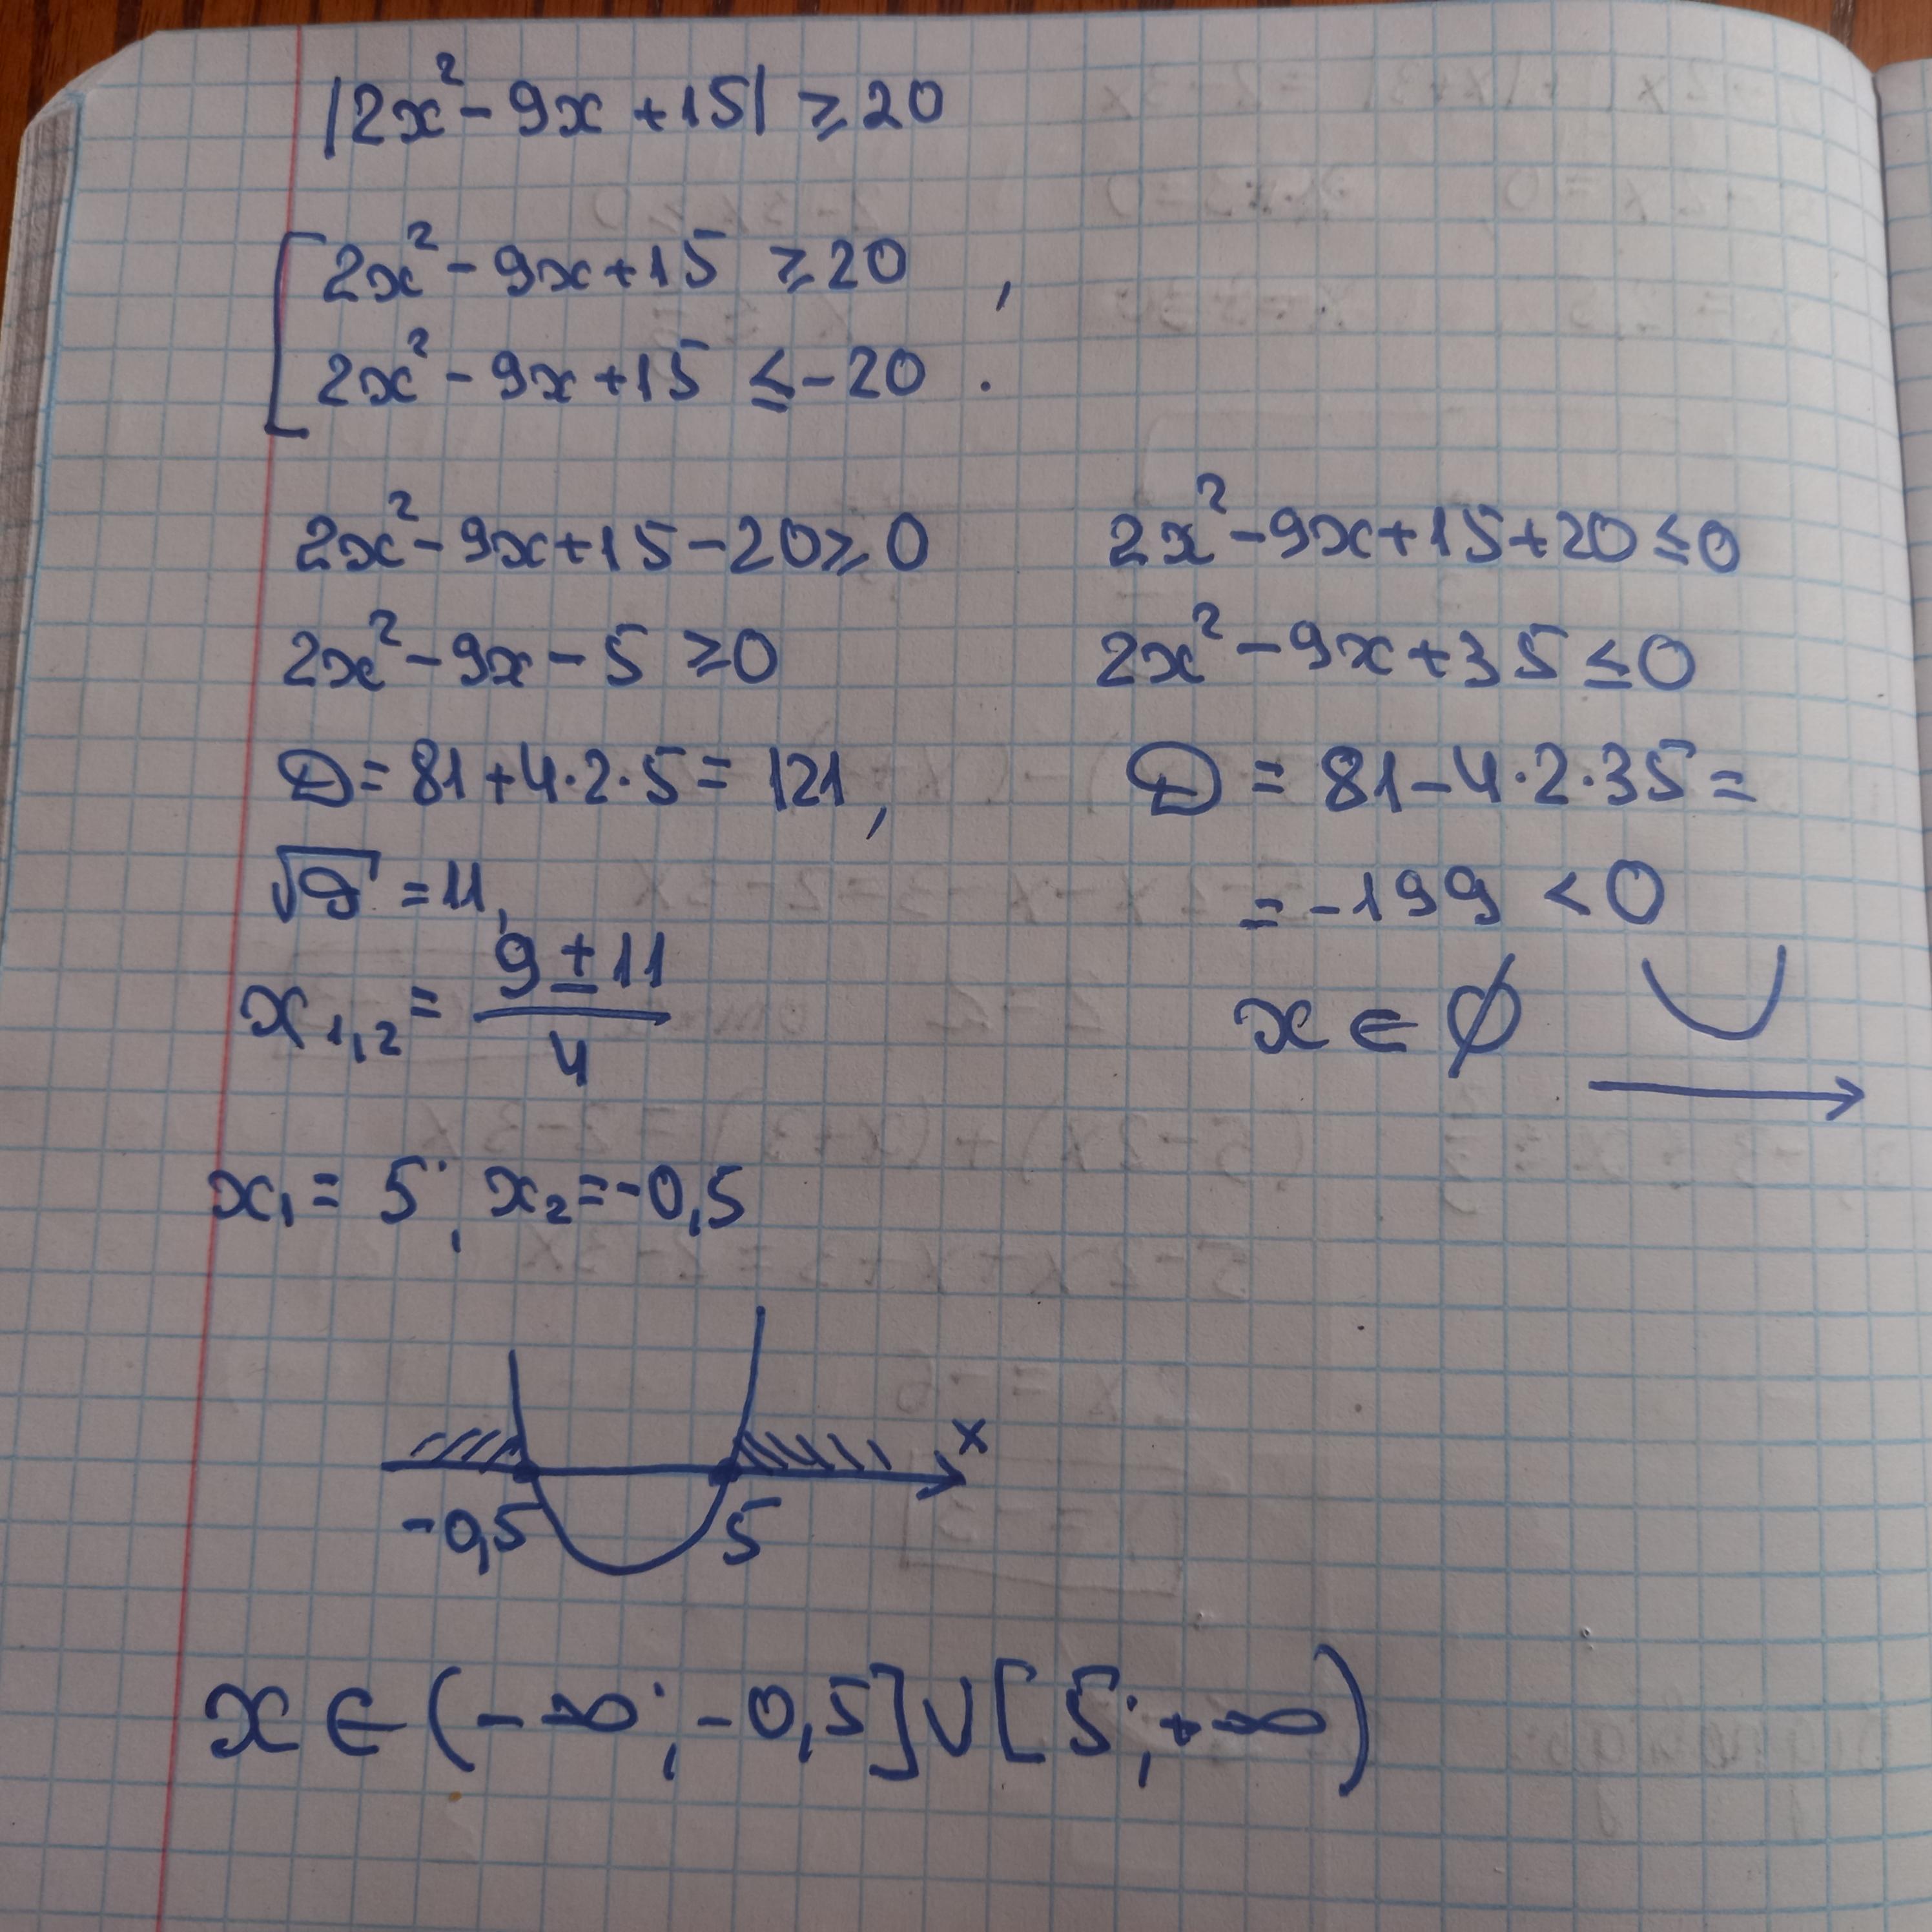 |2x² - 9x + 15| ≥ 20
2x² - 9x + 15 ≥ 20 ,
2x² - 9x + 15 ≤ -20 .
2x² - 9x + 15 - 20 ≥ 0
2x² - 9x - 5 ≥ 0
D = 81 + 4·2·5 = 121,
√D = 11,
x₁,₂ = (9 ± 11)/4
x₁ = 5; x₂ = -0,5
2x² - 9x + 15 + 20 ≤ 0
2x² - 9x + 35 ≤ 0
D = 81 - 4·2·35 =
= -199 < 0
x ∈ ∅
x
-0,5 5
x ∈ (-∞; -0,5] ∪ [5; +∞)